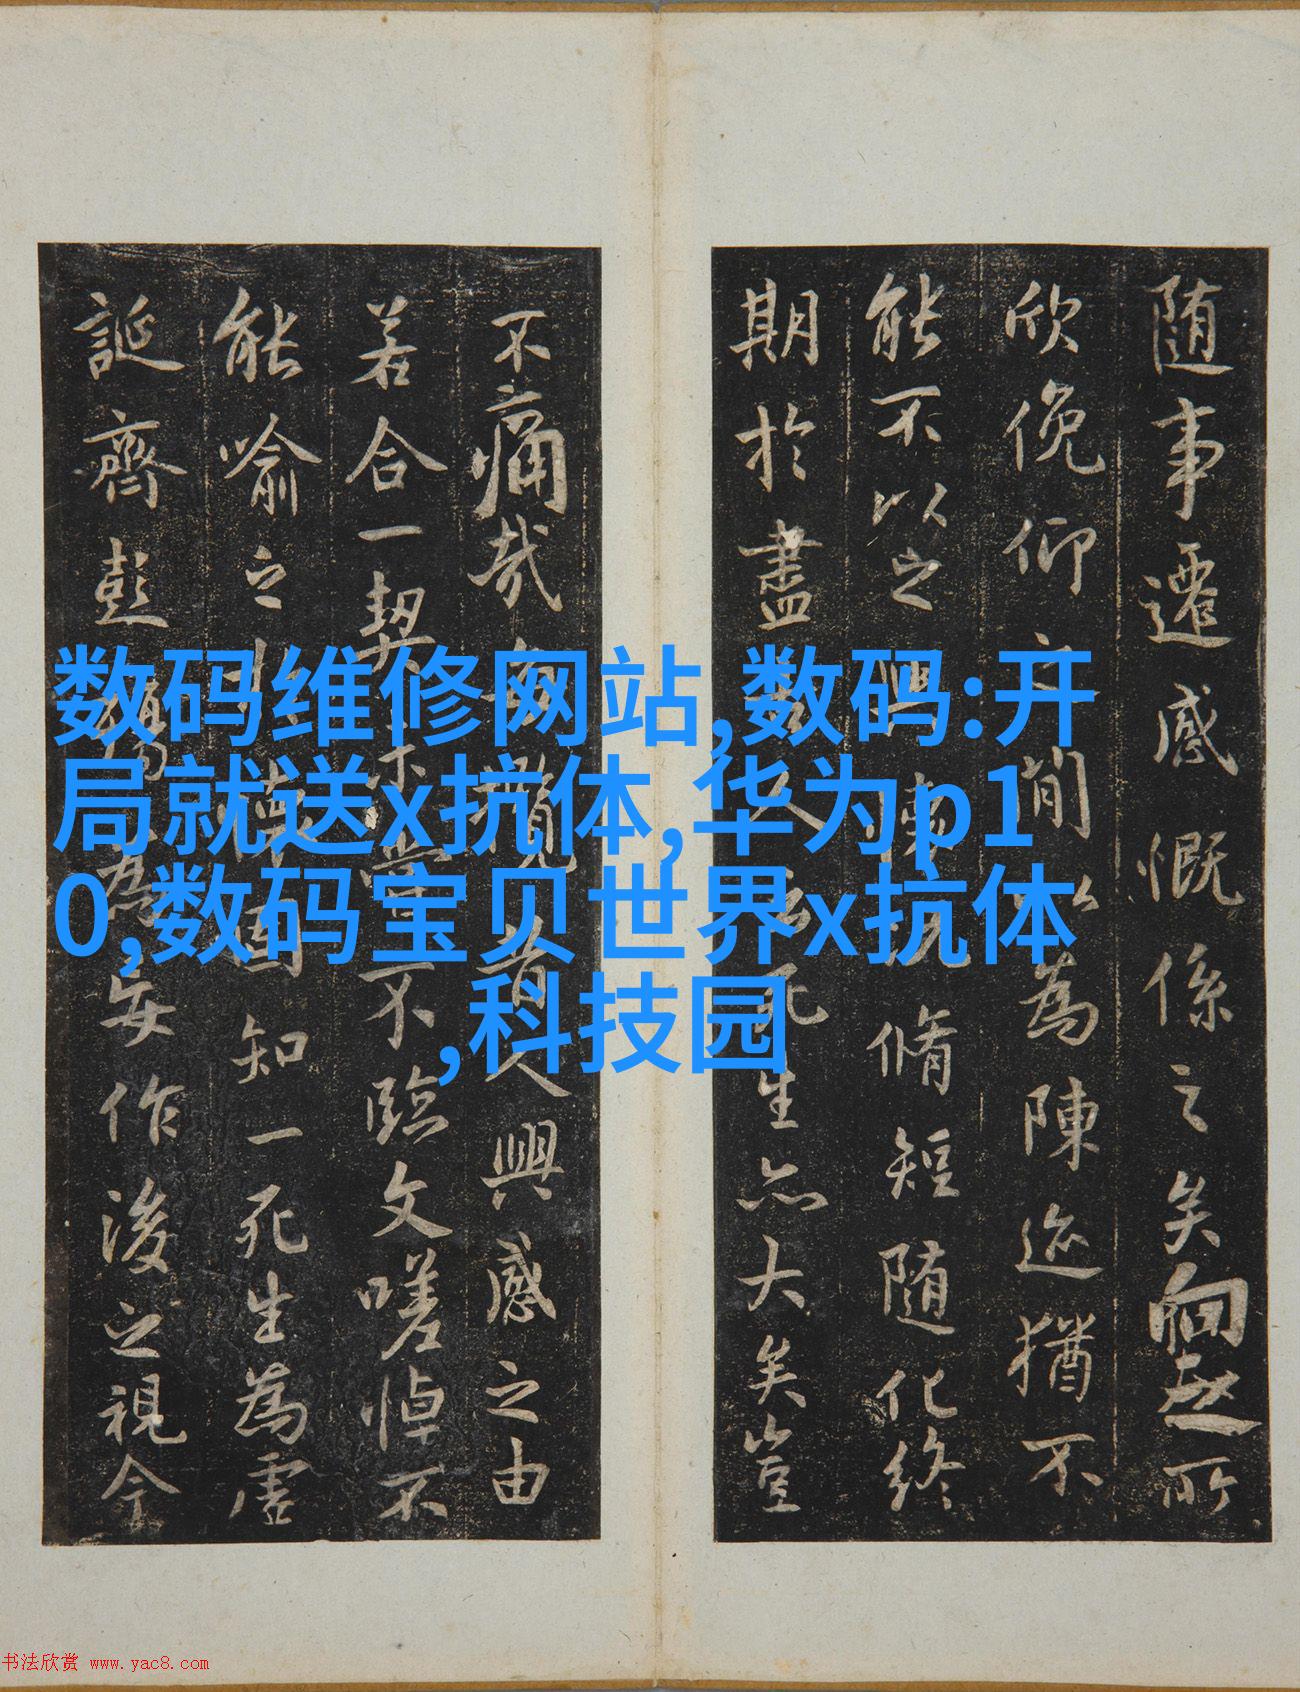 随事遷感慨係之矣向之所
欣俛仰之閒以為陳迹猶不
能不以之興懷況脩短随化終
期於盡古人云死生亦大矣豈
不痛哉每攬昔人興感之由
若合一契未嘗不臨文嗟悼不
能喻之於懷固知一死生為虛
誕齊彭殤為妄作後之視今
数码维修网站,数码:开
局就送x抗体,华为p1
0,数码宝贝世界x抗体
,科技园
书法欣赏 www.yac8.com